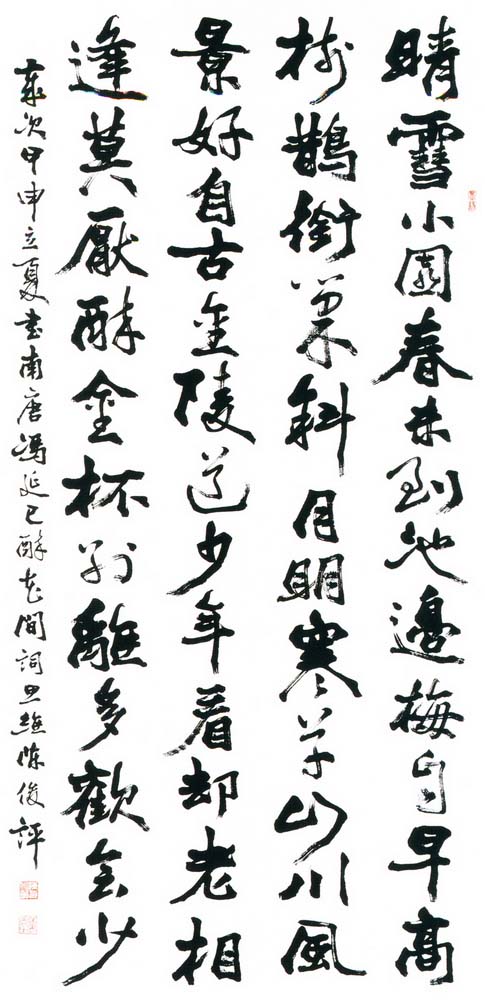 晴雪小園春未到池邊梅自早高
树鵲銜巢斜月明寒草山川風
景好自古金陵道少年看却老相
逢莫厭醉金杯别離多歡会少
歲次甲申立夏书南唐馮延巳醉花間詞陈俊評